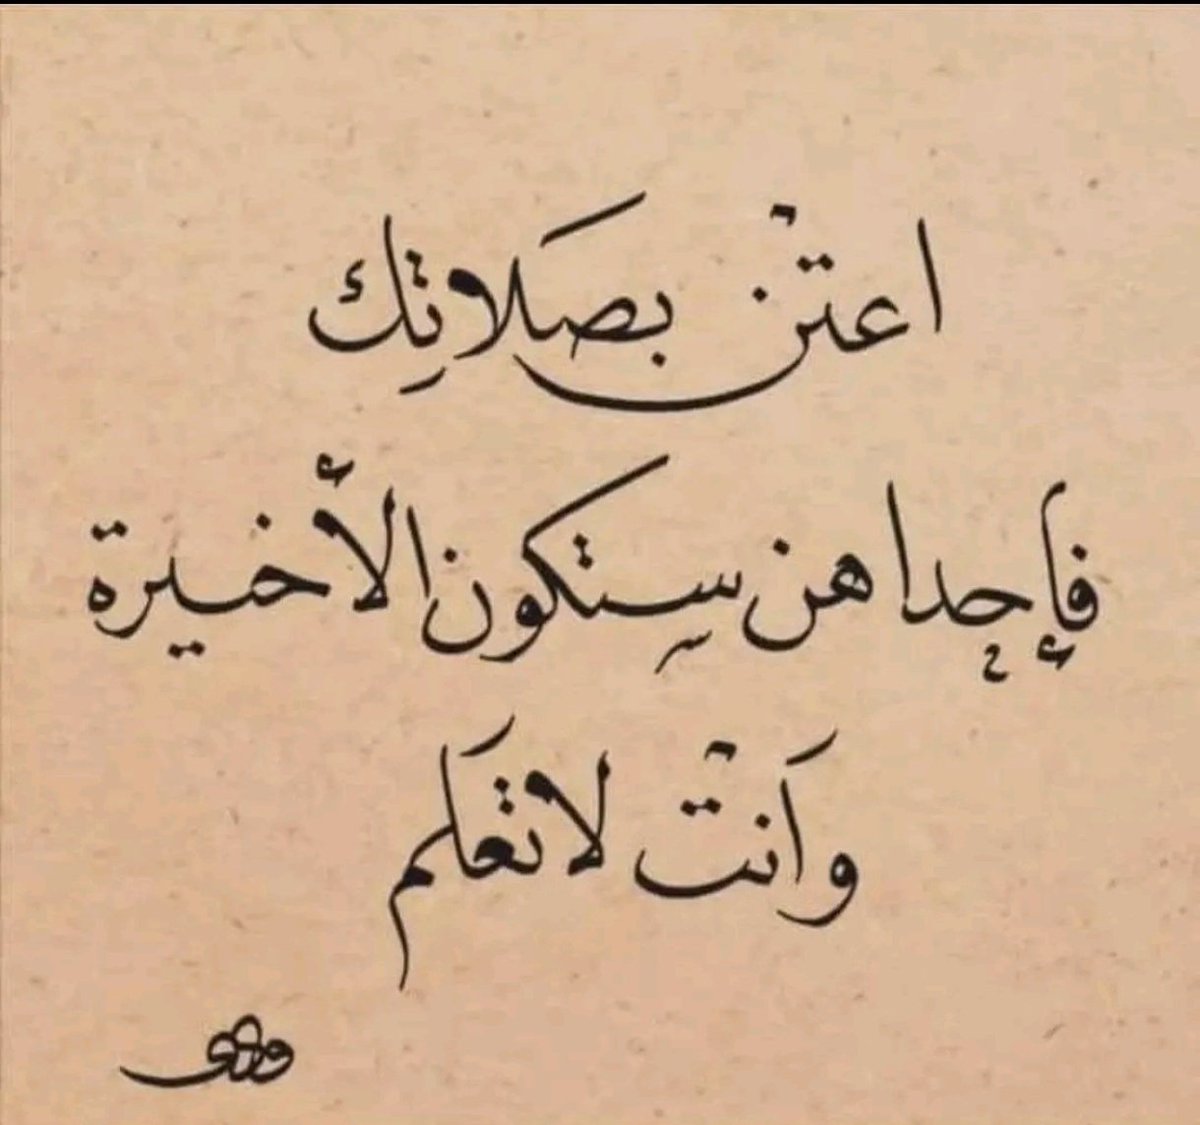 اعتنْ بصَلاتِك
فإحداهن سِتكون الأخيرة
وَانتْ لاتعَلم